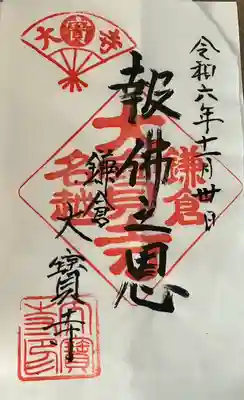 令和六年十一月丗日
報佛之恩
鎌倉
大寶寺
鎌倉
名越
大寶寺印